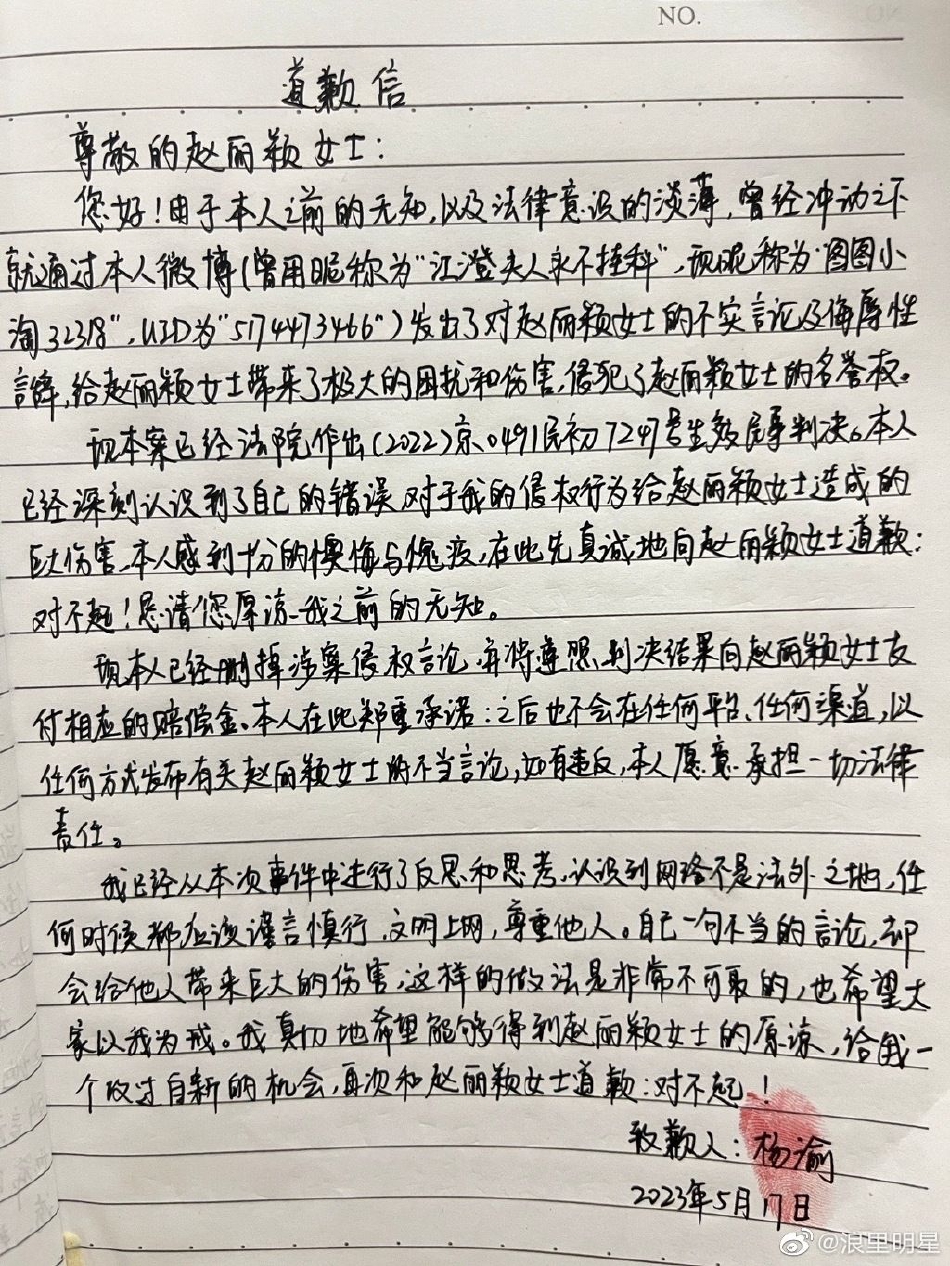 NO.
道歉信
尊敬的赵丽颖女士：
您好！由于本人之前的无知，以及法律意识的淡薄，曾经冲动之下
就通过本人微博（曾用昵称为“江澄夫人永不挂科”，现昵称为“图图小
淘32318”，UID为“5174473466”）发出了对赵丽颖女士的不实言论及侮辱性
言辞，给赵丽颖女士带来了极大的困扰和伤害，侵犯了赵丽颖女士的名誉权。
现本案已经法院作出（2022）京0491民初7247号生效民事判决。本人
已经深刻认识到了自己的错误，对于我的侵权行为给赵丽颖女士造成的
巨大伤害，本人感到十分的懊悔与愧疚，在此先真诚地向赵丽颖女士道歉：
对不起！恳请您原谅我之前的无知。
现本人已经删掉涉案侵权言论，并将遵照判决结果向赵丽颖女士支
付相应的赔偿金。本人在此郑重承诺：之后也不会在任何平台、任何渠道，以
任何方式发布有关赵丽颖女士的不当言论，如有违反，本人愿意承担一切法律
责任。
我已经从本次事件中进行了反思和思考，认识到网络不是法外之地，任
何时候都应该谨言慎行，文明上网，尊重他人。自己一句不当的言论，却
会给他人带来巨大的伤害，这样的做法是非常不可取的，也希望大
家以我为戒。我真切地希望能够得到赵丽颖女士的原谅，给我一
个改过自新的机会，再次和赵丽颖女士道歉：对不起！
致歉人：杨渝
2023年5月17日
@浪里明星